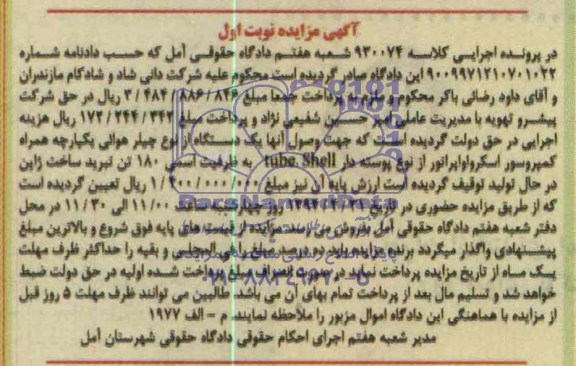 آگهی مزایده نوبت اول
در پرونده اجرایی کلاسه ۹۳۰۰۷۴ شعبه هفتم دادگاه حقوقی آمل که حسب دادنامه شماره
۹۰۰۹۹۷۱۲۱۰۷۰۱۰۲۲ این دادگاه صادر گردیده است محکوم علیه شرکت دانی شاد و شادکام مازندران
و آقای داود رضائی باکر محکوم و ملزم به پرداخت جمعا مبلغ ۳/۴۸۴/۸۸۶/۸۴۶ ریال در حق شرکت
پیشرو تهویه با مدیریت عاملی امیر حسین شفیعی نژاد و پرداخت مبلغ ۱۷۲/۲۴۴/۳۴۲ ریال هزینه
اجرایی در حق دولت گردیده است که جهت وصول آنها یک دستگاه از نوع چیلر هوائی یکپارچه همراه
کمپرسور اسکرواواپراتور از نوع پوسته دار tube. Shell به ظرفیت اسمی ۱۸۰ تن تبرید ساخت ژاپن
در حال تولید توقیف گردیده است ارزش پایه آن نیز مبلغ ریال تعیین گردیده است
که از طریق مزایده حضوری در تاریخ روز چهارشنبه ساعت ۱۱/۰۰ الی ۱۱/۳۰ در محل
دفتر شعبه هفتم دادگاه حقوقی آمل بفروش می رسد مزایده از قیمت های پایه فوق شروع و بالاترین مبلغ
پیشنهادی واگذار میگردد برنده مزایده باید ده درصد مبلغ را فی المجلس و بقیه را حداکثر ظرف مهلت
یک ماه از تاریخ مزایده پرداخت نماید در صورت انصراف مبلغ پرداخت شده اولیه در حق دولت ضبط
خواهد شد و تسلیم مال بعد از پرداخت تمام بهای آن می باشد طالبین می توانند ظرف مهلت ۵ روز قبل
از مزایده با هماهنگی این دادگاه اموال مزبور را ملاحظه نمایند. م - الف ۱۹۷۷
مدیر شعبه هفتم اجرای احکام حقوقی دادگاه حقوقی شهرستان آمل